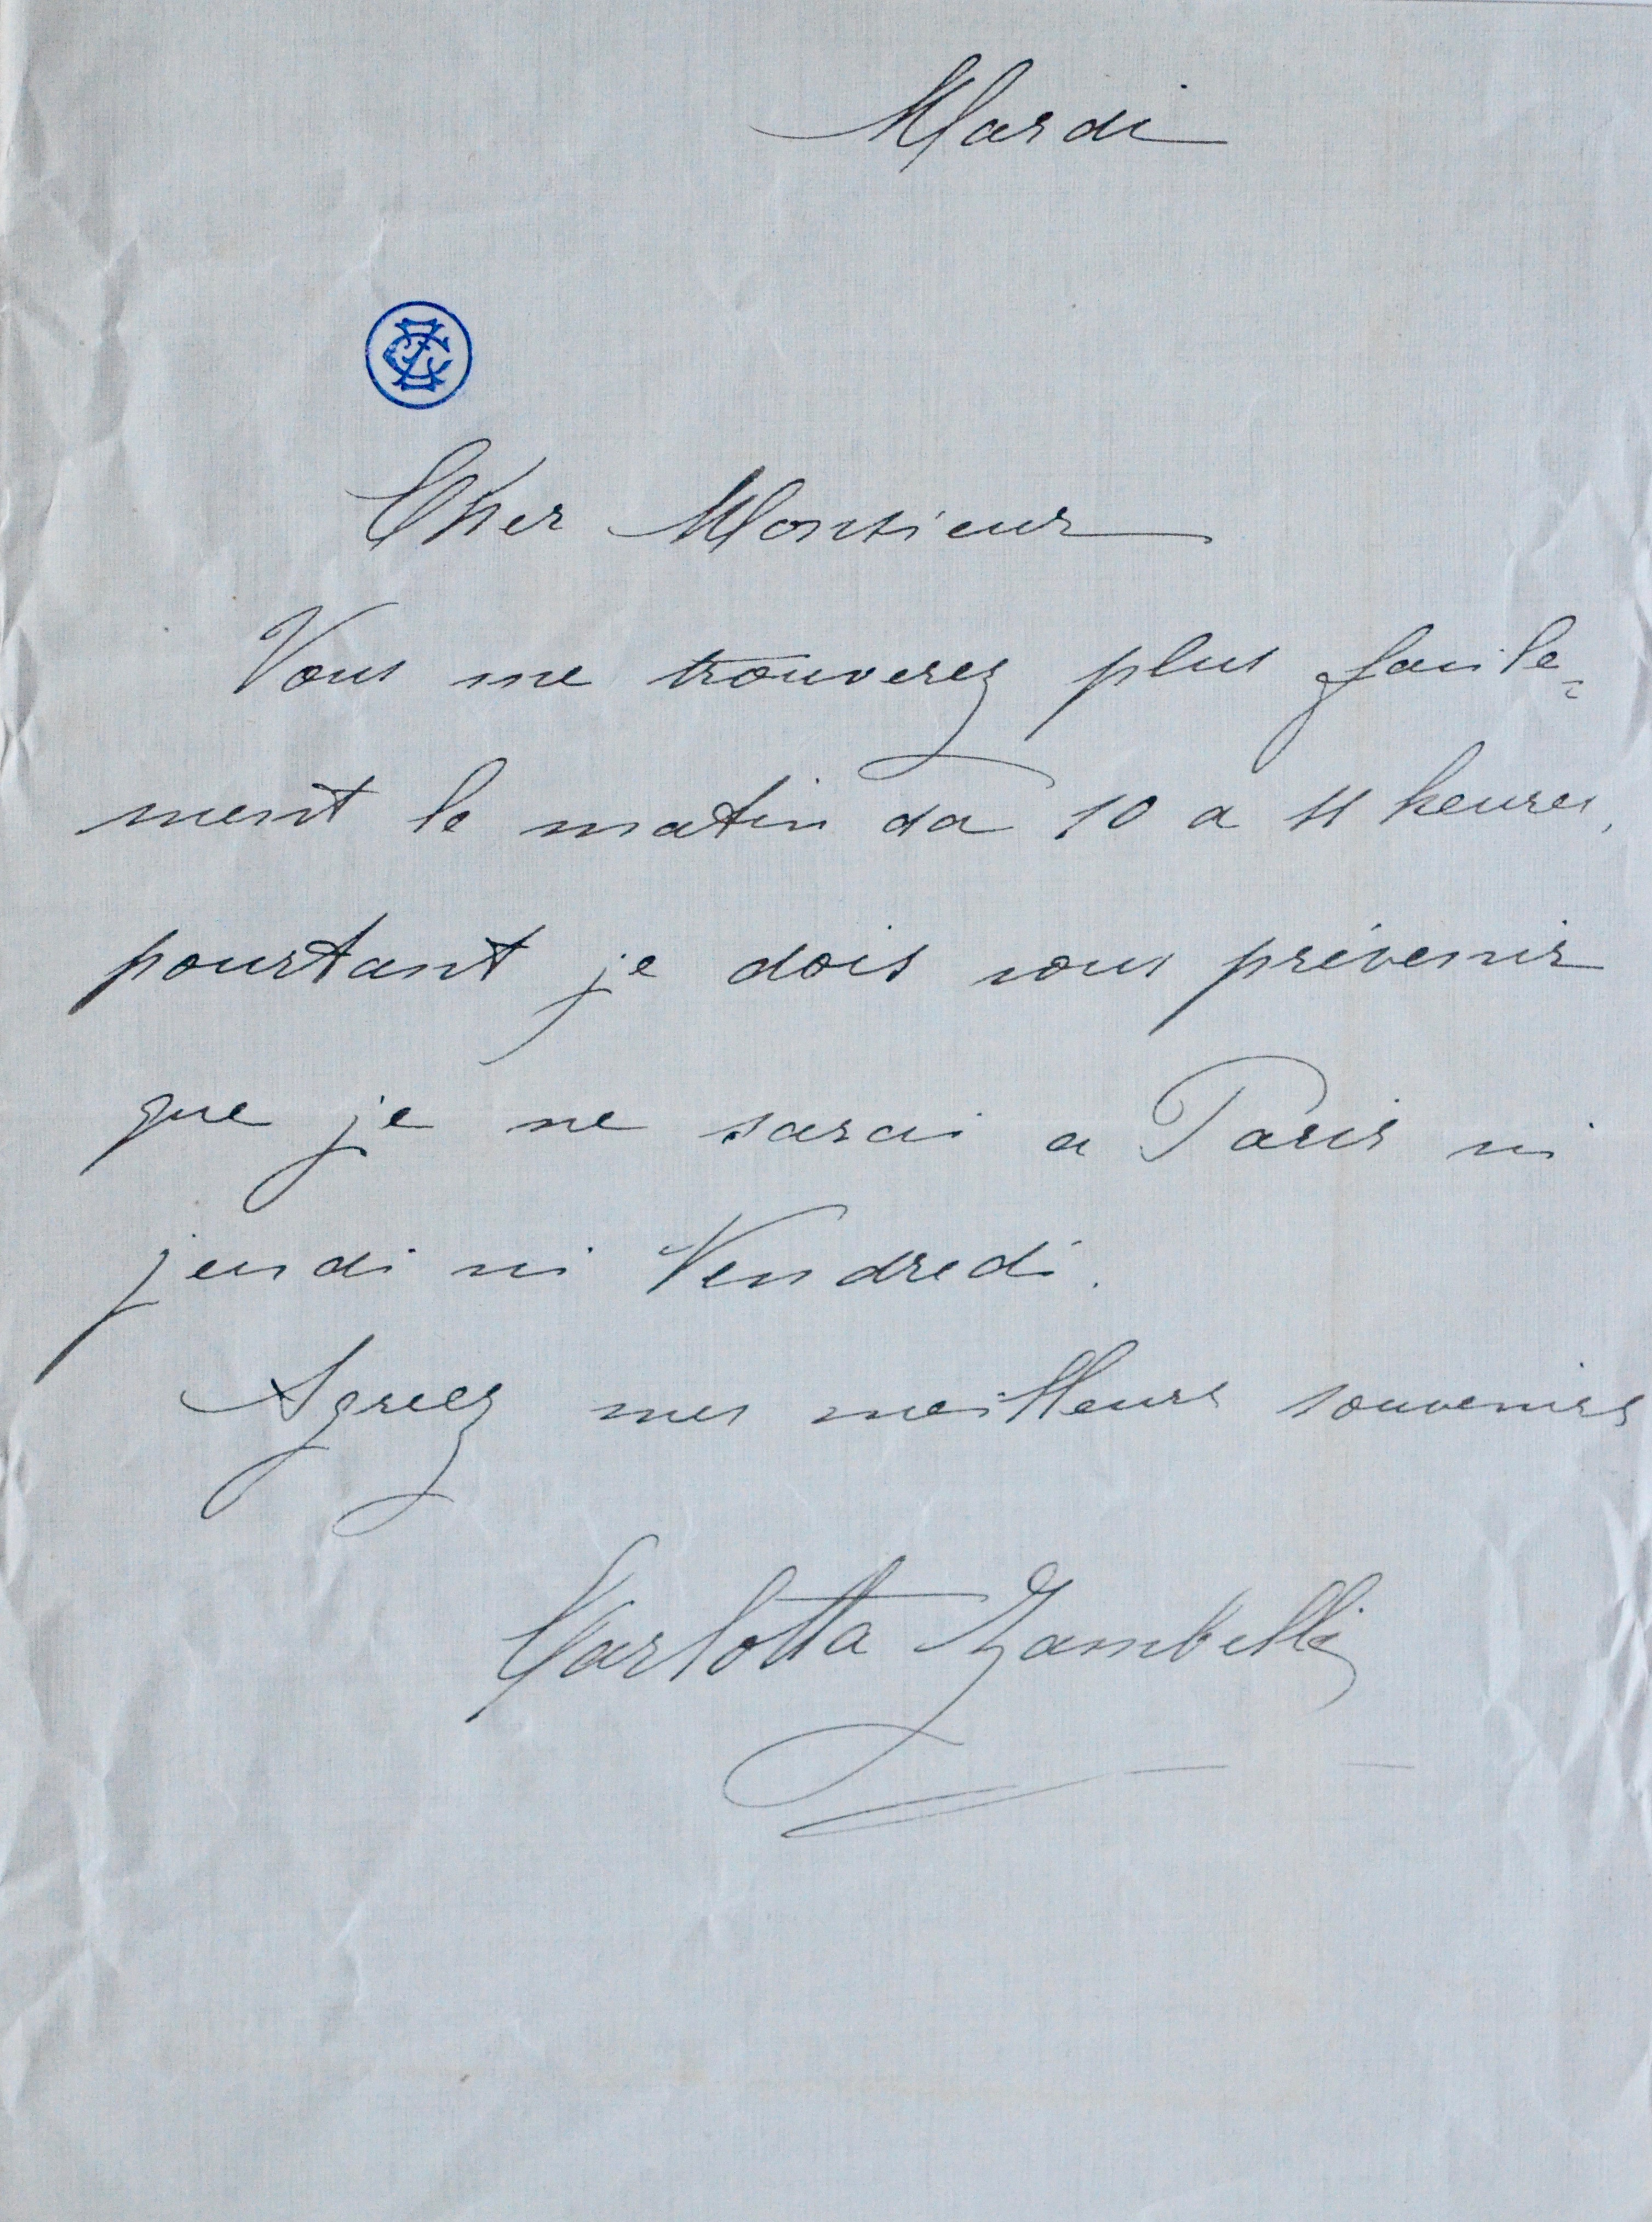 Mardi
CZ
Cher Monsieur
Vous me trouverez plus facile=
ment le matin da 10 a 11 heures,
pourtant je dois vous prévenir
que je ne sarai a Paris ni
jeudi ni Vendredi.
Agréez mes meilleurs souvenirs
Carlotta Zambelli